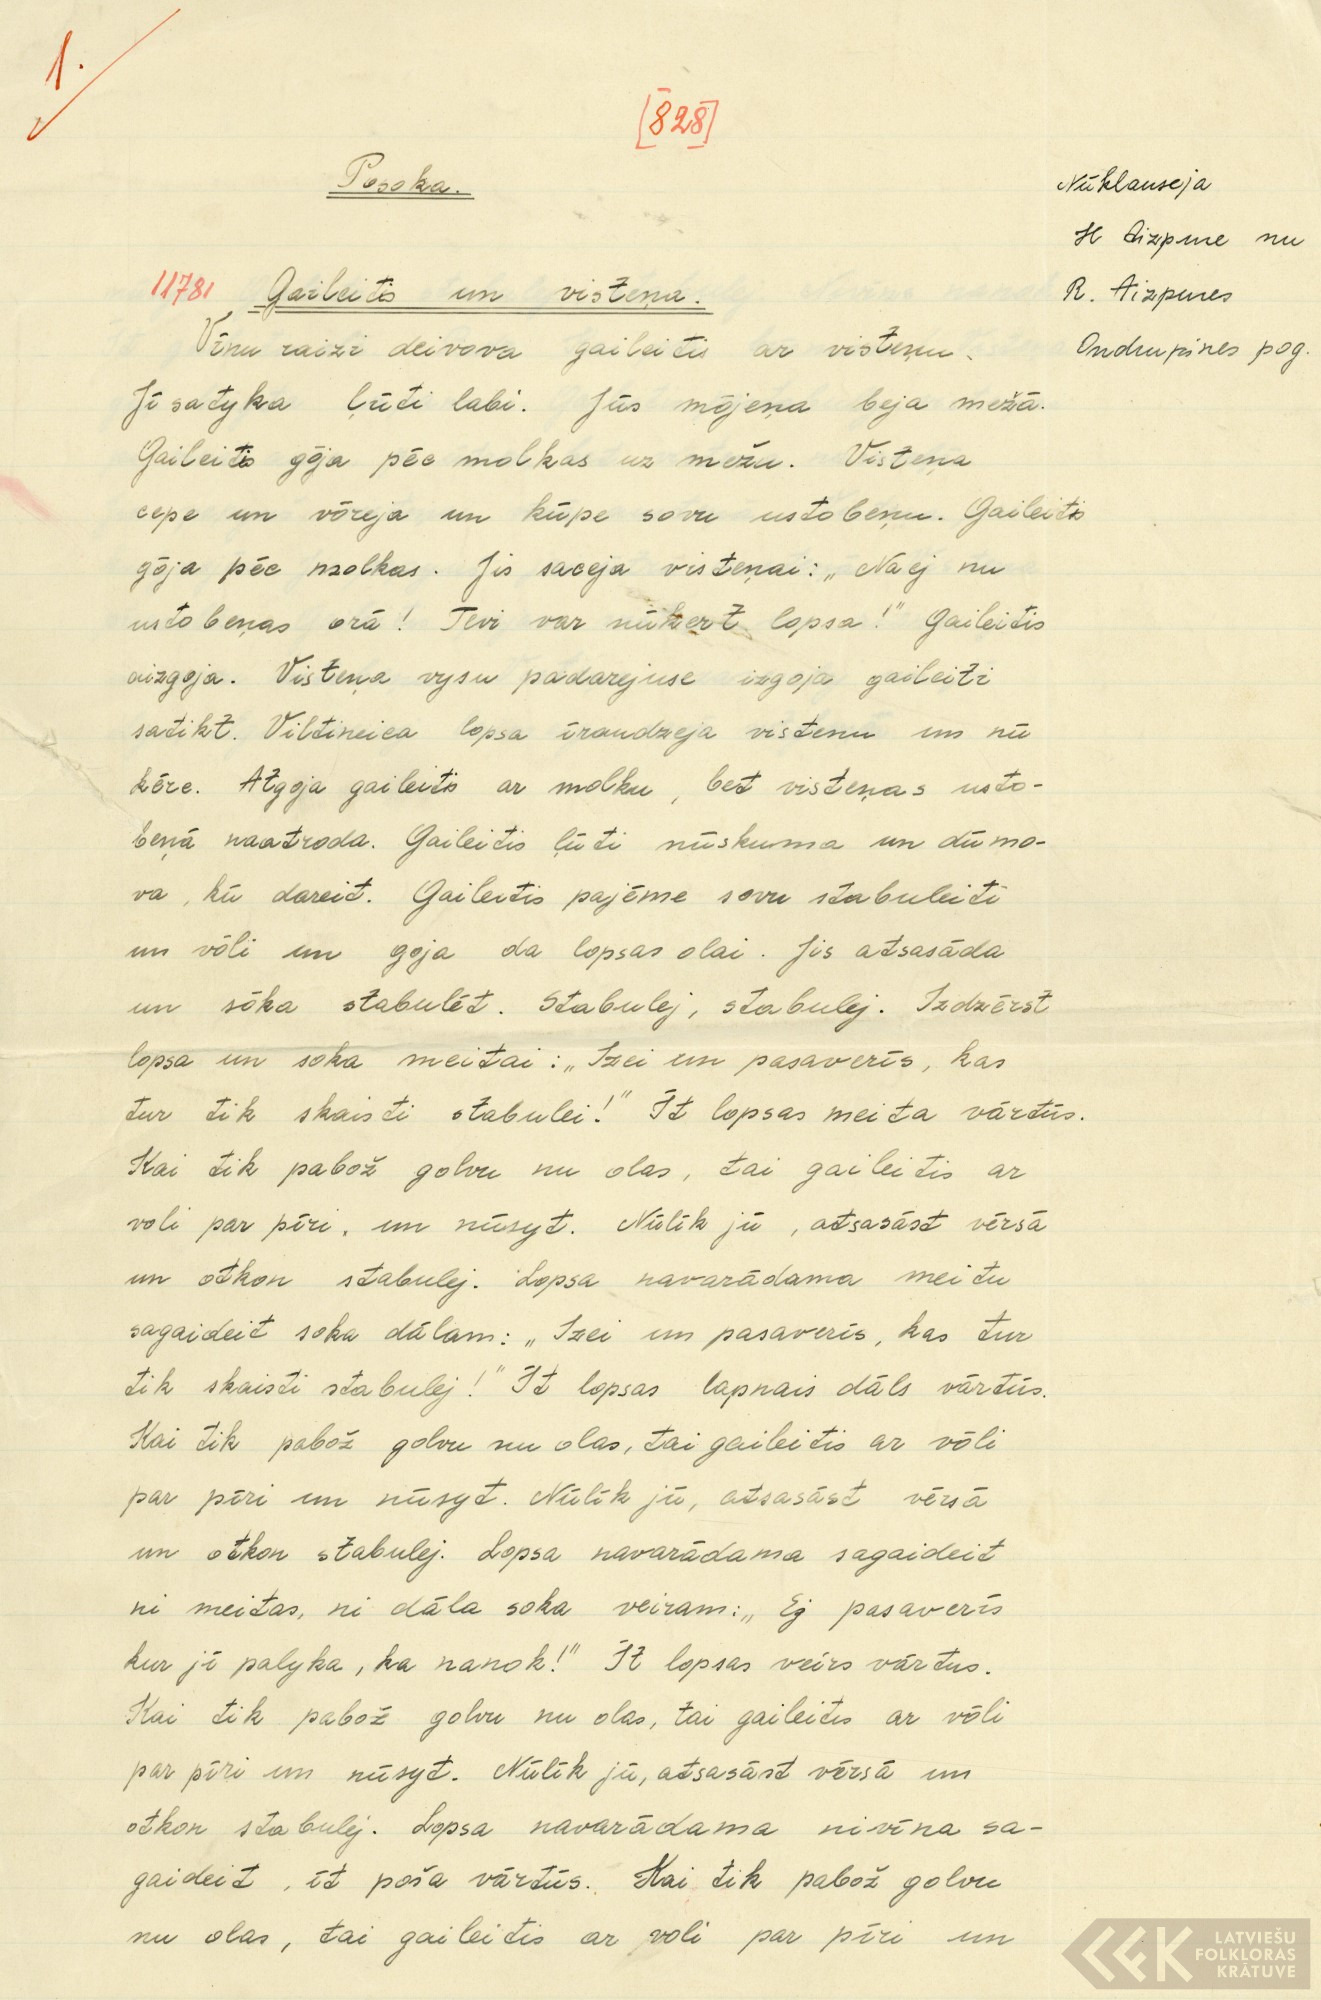 1.
[828]
Posoka.
Nūklauseja
H Aizpure nu
R. Aizpures
Ondrupines pog.
11781 Gaileitis un visteņa.
Vīnu raizi deivova gaileitis ar visteņu.
Jī satyka ļūti labi. Jūs mōjeņa beja mežā.
Gaileitis gōja pēc molkas uz mežu. Visteņa
cepe un vōreja un kūpe sovu ustobeņu. Gaileitis
gōja pēc molkas. Jis saceja visteņai: „Naej nu
ustobeņas orā! Tevi var nūkert lopsa!" Gaileitis
aizgoja. Visteņa vysu padarejuse izgoja gaileiti
satikt. Viltineica lopsa īraudzeja vistenu un nū
kēre. Atgoja gaileitis ar molku, bet visteņas usto-
beņā naatroda. Gaileitis ļūti nūskuma un dūmo-
va, kū dareit. Gaileitis pajēme sovu stabuleiti
un vōli un goja da lopsas olai. Jis atsasāda
un sōka stabulēt. Stabulej, stabulej. Izdzērst
lopsa un soka meitai: „Izei un pasaverīs, kas
tur tik skaisti stabulei!" Īt lopsas meita vārtūs.
Kai tik pabož golvu nu olas, tai gaileitis ar
voli par pīri, un nūsyt. Nūlīk jū, atsasāst vērsā
un otkon stabulej. Lopsa navarādama meitu
sagaideit soka dālam: „Izei un pasaverīs, kas tur
tik skaisti stabulej!" Īt lopsas lapnais dāls vārtūs.
Kai tik pabož golvu nu olas, tai gaileitis ar vōli
par pīri un nūsyt. Nūlīk jū, atsasāst vērsā
un otkon stabulej. Lopsa navarādama sagaideit
ni meitas, ni dāla soka veiram: „Ej pasaverīs
kur jī palyka, ka nanok!" Īt lopsas veirs vārtus.
Kai tik pabož golvu nu olas, tai gaileitis ar vōli
par pīri un nūsyt. Nūlīk jū, atsasāst vērsā un
otkon stabulej. Lopsa navarādama nivīna sa-
gaideit, īt poša vārtūs. Kai tik pabož golvu
nu olas, tai gaileitis ar voli par pīri un
LATVIEŠU
FOLKLORAS
KRĀTUVE